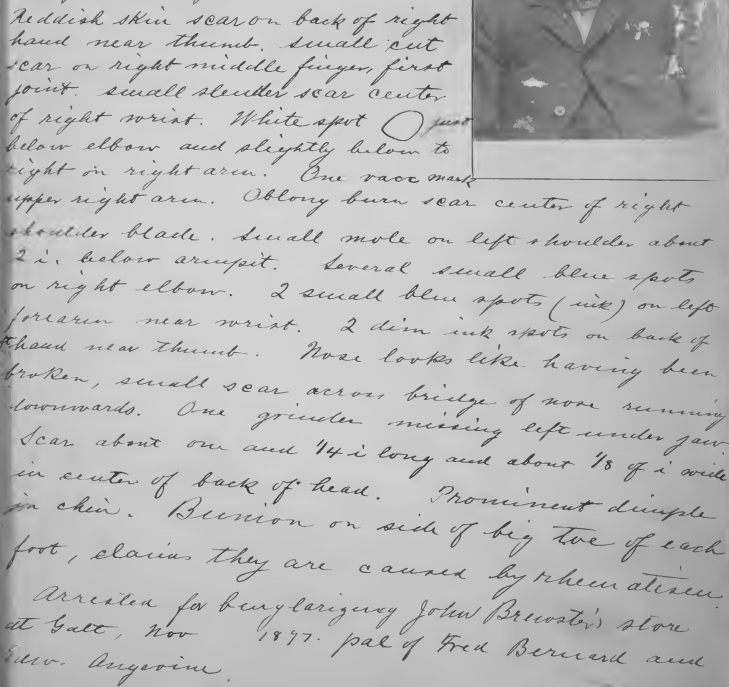 Reddish skin scar on back of right
hand near thumb. Small cut
scar on right middle finger, first
joint. Small slender scar center
of right wrist. White spot just
below elbow and slightly below to
right on right arm. One vacc mark
upper right arm. Oblong burn scar center of right
shoulder blade. Small mole on left shoulder about
2 i. below armpit. Several small blue spots
on right elbow. 2 small blue spots (ink) on left
forearm near wrist. 2 dim ink spots on back of
hand near thumb. Nose looks like having been
broken, small scar across bridge of nose running
downwards. One grinder missing left under jaw.
Scar about one and 1/4 i long and about 1/8 of i wide
in center of back of head. Prominent dimple
in chin. Bunion on side of big toe of each
foot, claims they are caused by rheumatism.
Arrested for burglarizing John Brewster's store
at Galt, Nov 1897. pal of Fred Bernard and
Edw. Angevine.